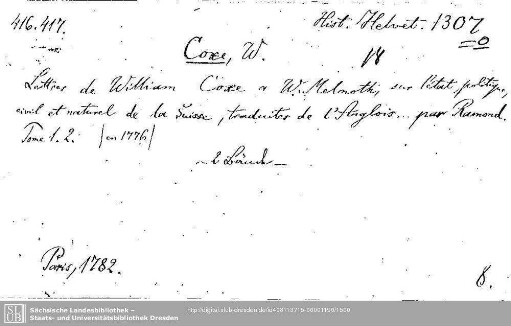 416.417.
Hist. Helvet. 1307
Coxe, W.
Lettres de William Coxe a W. Melmoth, sur l'état politique,
civil et naturel de la Suisse, traduites de l'Anglois... par Ramond.
Tome 1. 2. (en 1776)
2 Bände
Paris, 1782.
8.
Sächsische Landesbibliothek –
Staats- und Universitätsbibliothek Dresden